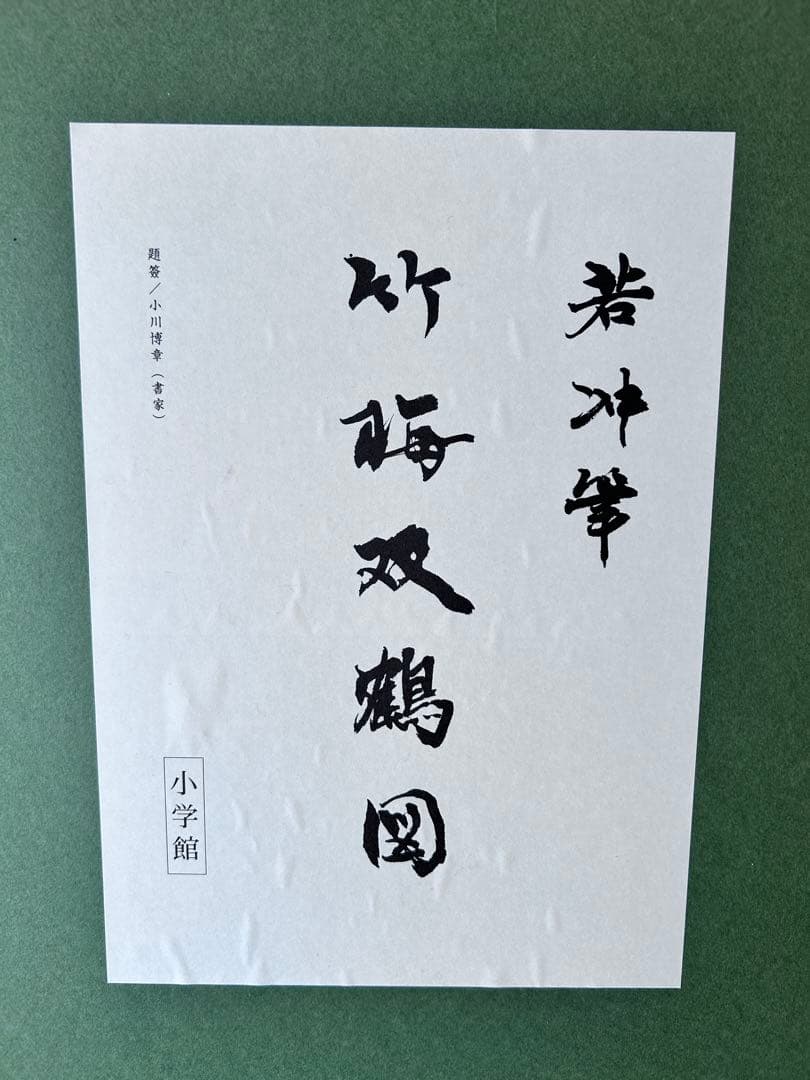 若冲筆
竹梅双鶴図
題簽／小川博章（書家）
小学館